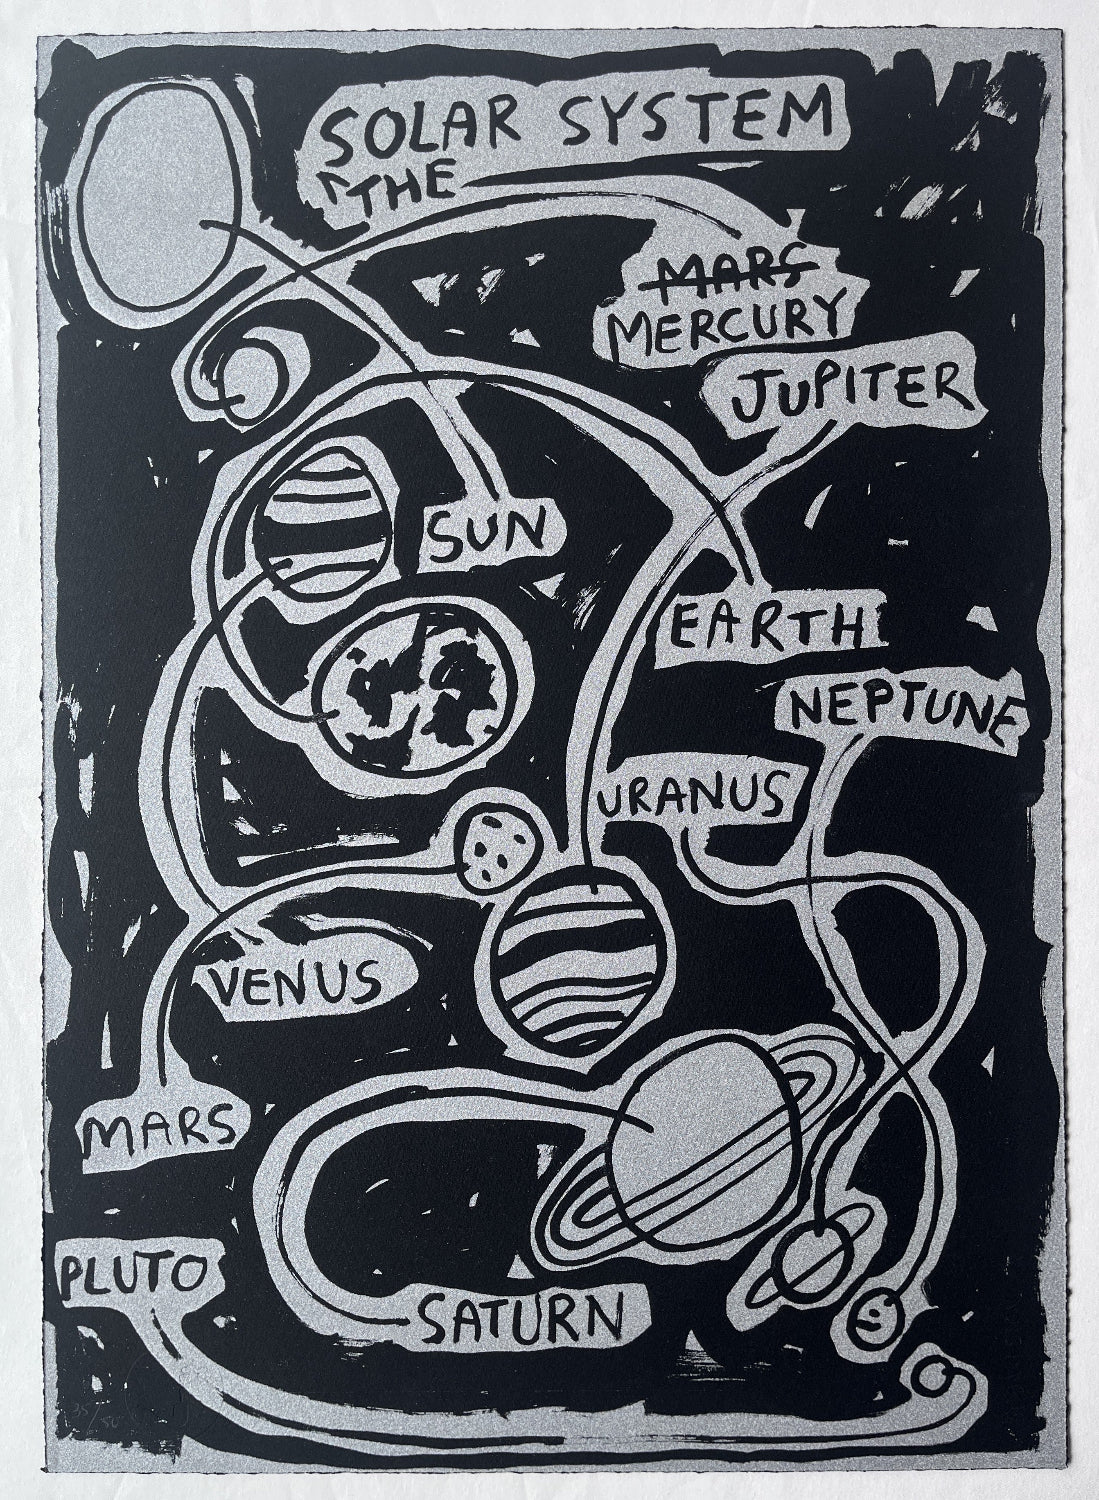 SOLAR SYSTEM
THE
MARS
MERCURY
JUPITER
SUN
EARTH
NEPTUNE
URANUS
VENUS
MARS
PLUTO
SATURN